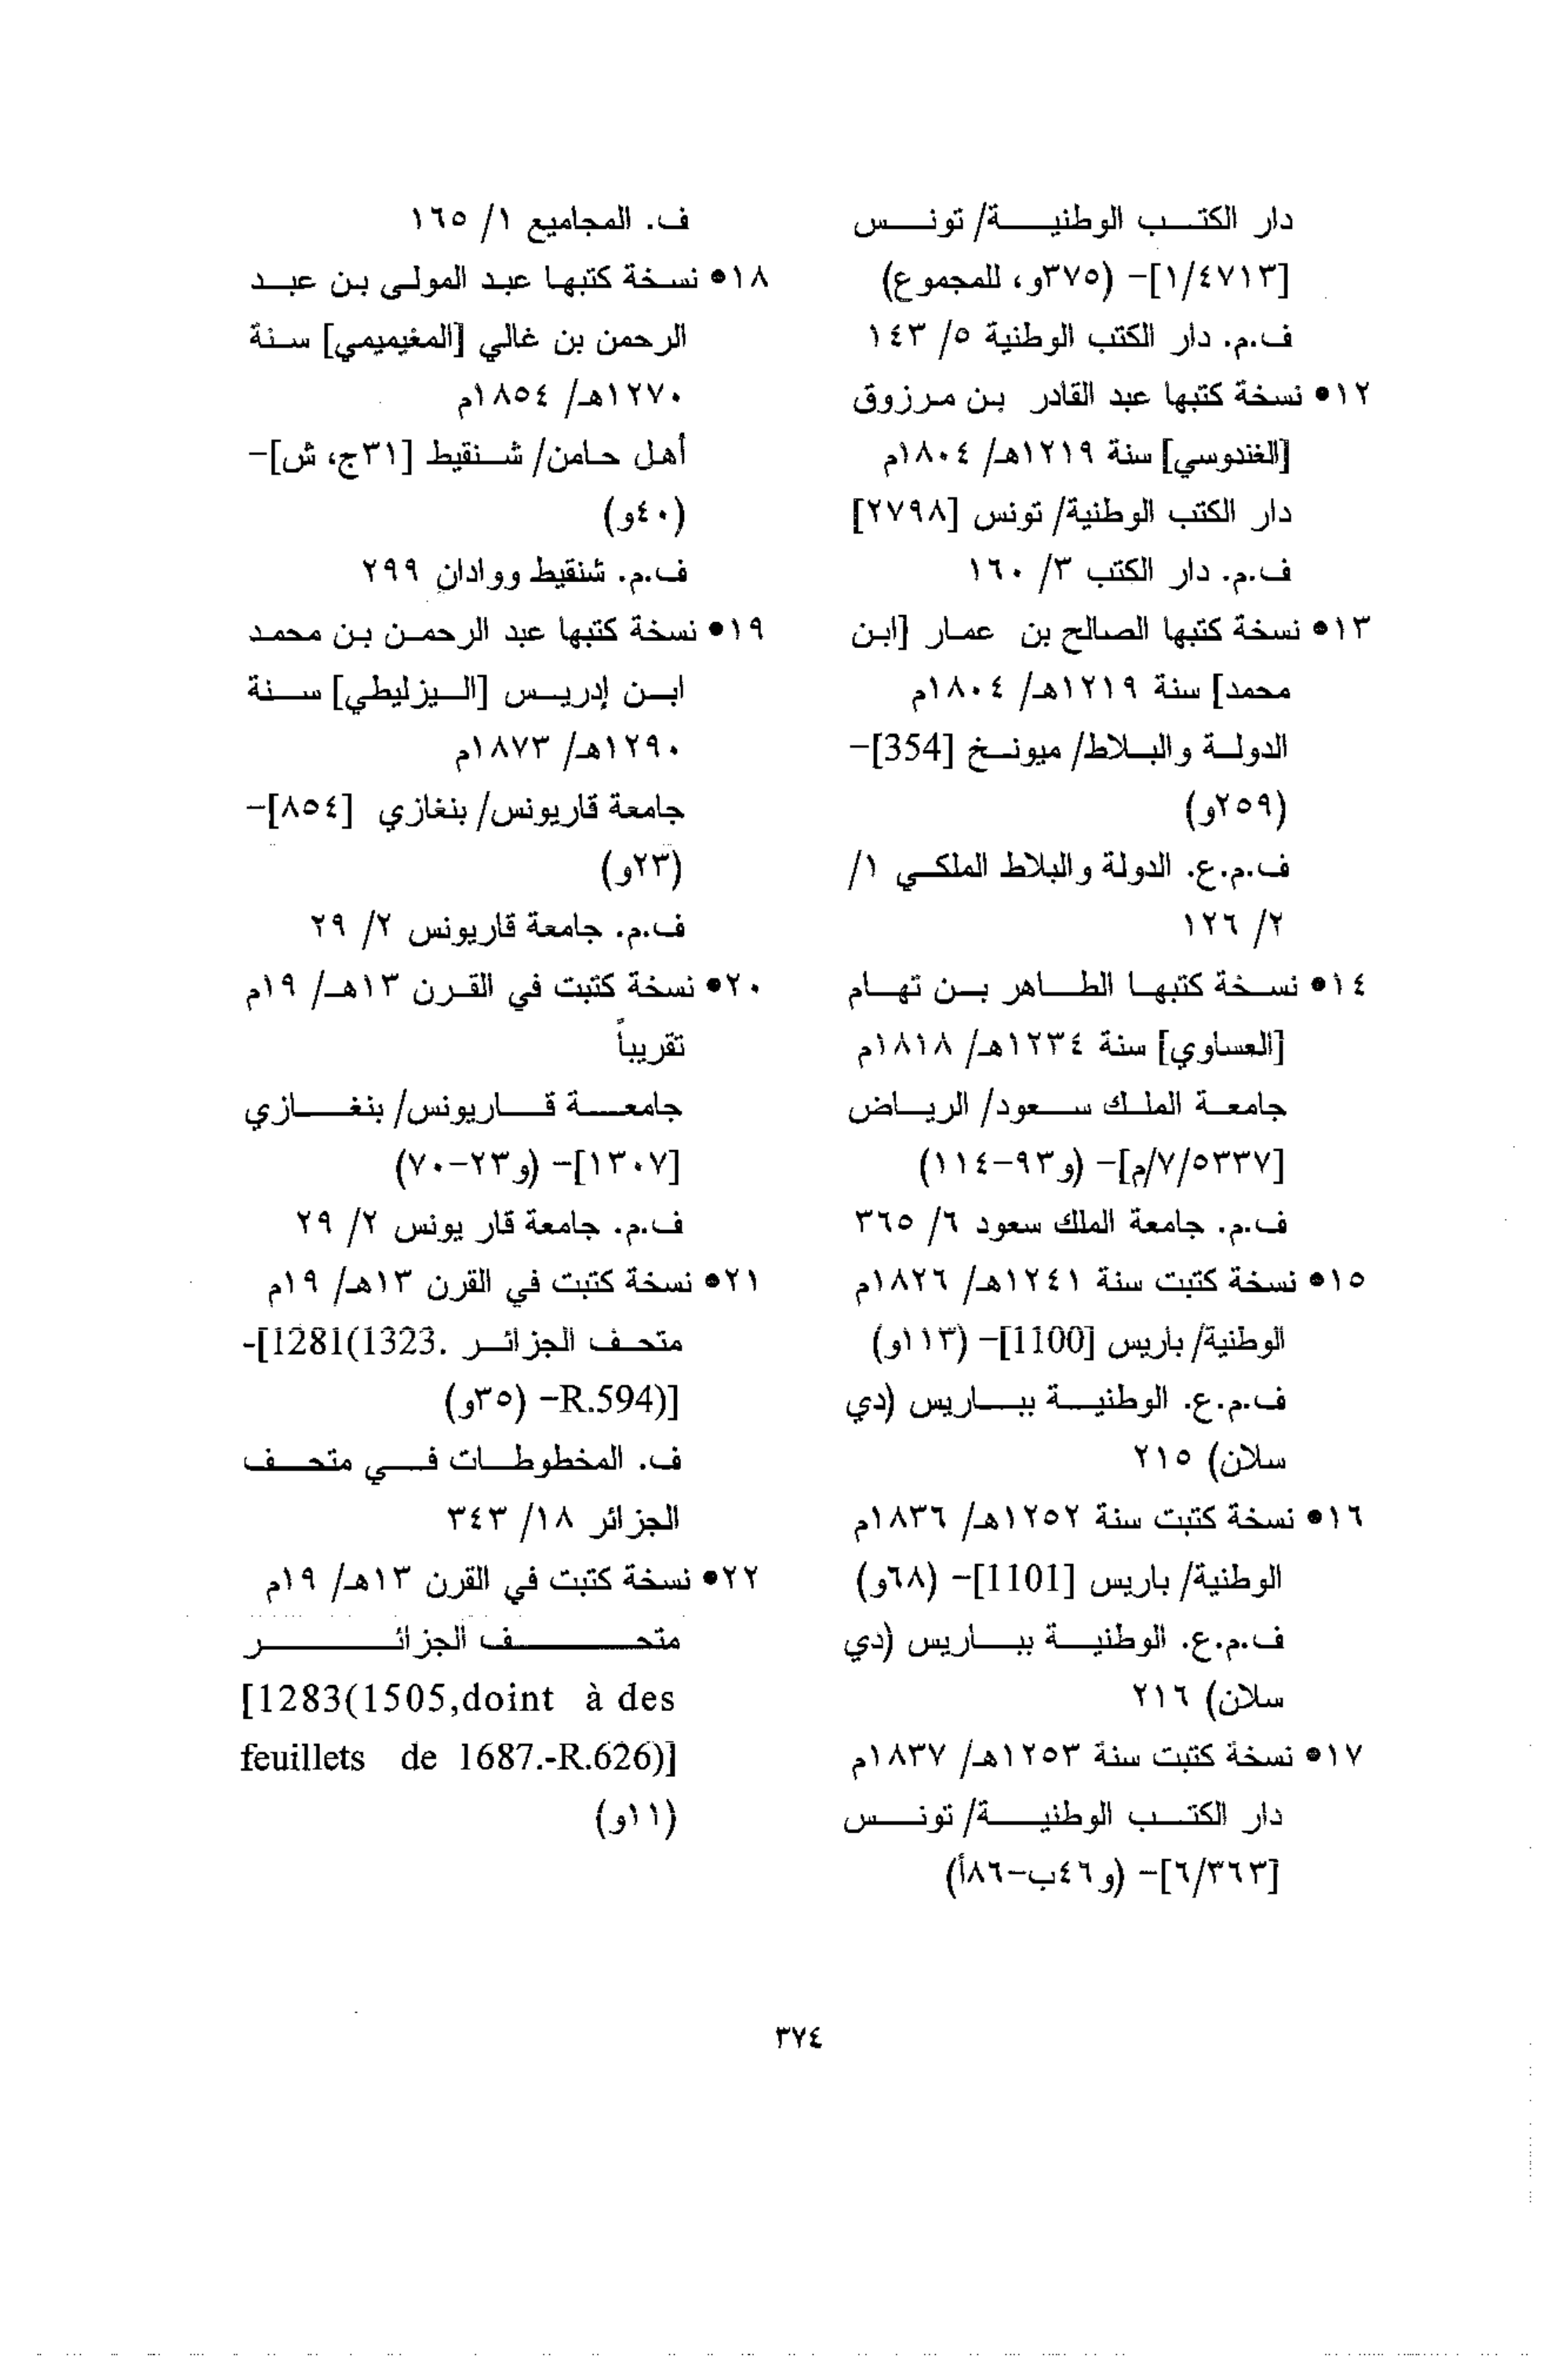 دار الكتب الوطنية/ تونس
[١/٤٧١٣]- (٣٧٥و، للمجموع)
ف.م. دار الكتب الوطنية ٥/ ١٤٣
١٢• نسخة كتبها عبد القادر بن مرزوق
[الغندوسي] سنة ١٢١٩هـ/ ١٨٠٤م
دار الكتب الوطنية/ تونس [٢٧٩٨]
ف.م. دار الكتب ٣/ ١٦٠
١٣• نسخة كتبها الصالح بن عمار [ابن
محمد] سنة ١٢١٩هـ/ ١٨٠٤م
الدولة والبلاط/ ميونخ [354]-
(٢٥٩و)
ف.م.ع. الدولة والبلاط الملكي ١/
٢/ ١٢٦
١٤• نسخة كتبها الطاهر بن تهام
[العساوي] سنة ١٢٣٤هـ/ ١٨١٨م
جامعة الملك سعود/ الرياض
[٧/٥٣٣٧/م]- (و٩٣-١١٤)
ف.م. جامعة الملك سعود ٦/ ٣٦٥
١٥• نسخة كتبت سنة ١٢٤١هـ/ ١٨٢٦م
الوطنية/ باريس [1100]- (١١٣و)
ف.م.ع. الوطنية بباريس (دي
سلان) ٢١٥
١٦• نسخة كتبت سنة ١٢٥٢هـ/ ١٨٣٦م
الوطنية/ باريس [1101]- (٦٨و)
ف.م.ع. الوطنية بباريس (دي
سلان) ٢١٦
١٧• نسخة كتبت سنة ١٢٥٣هـ/ ١٨٣٧م
دار الكتب الوطنية/ تونس
[٦/٣٦٣]- (و٤٦ب-٨٦أ)
ف. المجاميع ١/ ١٦٥
١٨• نسخة كتبها عبد المولى بن عبد
الرحمن بن غالي [المغيميمي] سنة
١٢٧٠هـ/ ١٨٥٤م
أهل حامن/ شنقيط [٣١ج، ش]-
(٤٠و)
ف.م. شنقيط ووادان ٢٩٩
١٩• نسخة كتبها عبد الرحمن بن محمد
ابن إدريس [اليزليطي] سنة
١٢٩٠هـ/ ١٨٧٣م
جامعة قاريونس/ بنغازي [٨٥٤]-
(٢٣و)
ف.م. جامعة قاريونس ٢/ ٢٩
٢٠• نسخة كتبت في القرن ١٣هـ/ ١٩م
تقريباً
جامعة قاريونس/ بنغازي
[١٣٠٧]- (و٢٣-٧٠)
ف.م. جامعة قار يونس ٢/ ٢٩
٢١• نسخة كتبت في القرن ١٣هـ/ ١٩م
متحف الجزائر [1281(1323.-
R.594)]- (٣٥و)
ف. المخطوطات في متحف
الجزائر ١٨/ ٣٤٣
٢٢• نسخة كتبت في القرن ١٣هـ/ ١٩م
متحف الجزائر
[1283(1505,doint à des
feuillets de 1687.-R.626)]
(١١و)
٣٧٤